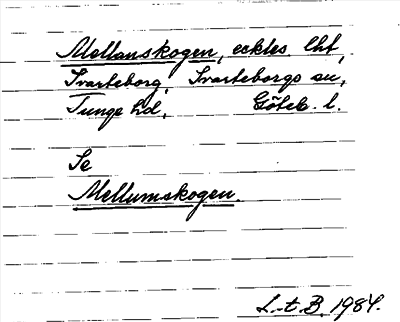 Mellanskogen, eckles. lht,
Svarteborg, Svarteborgs sn,
Tunge hd, Göteb. l.
Se
Mellumskogen.
L.t.B. 1984.